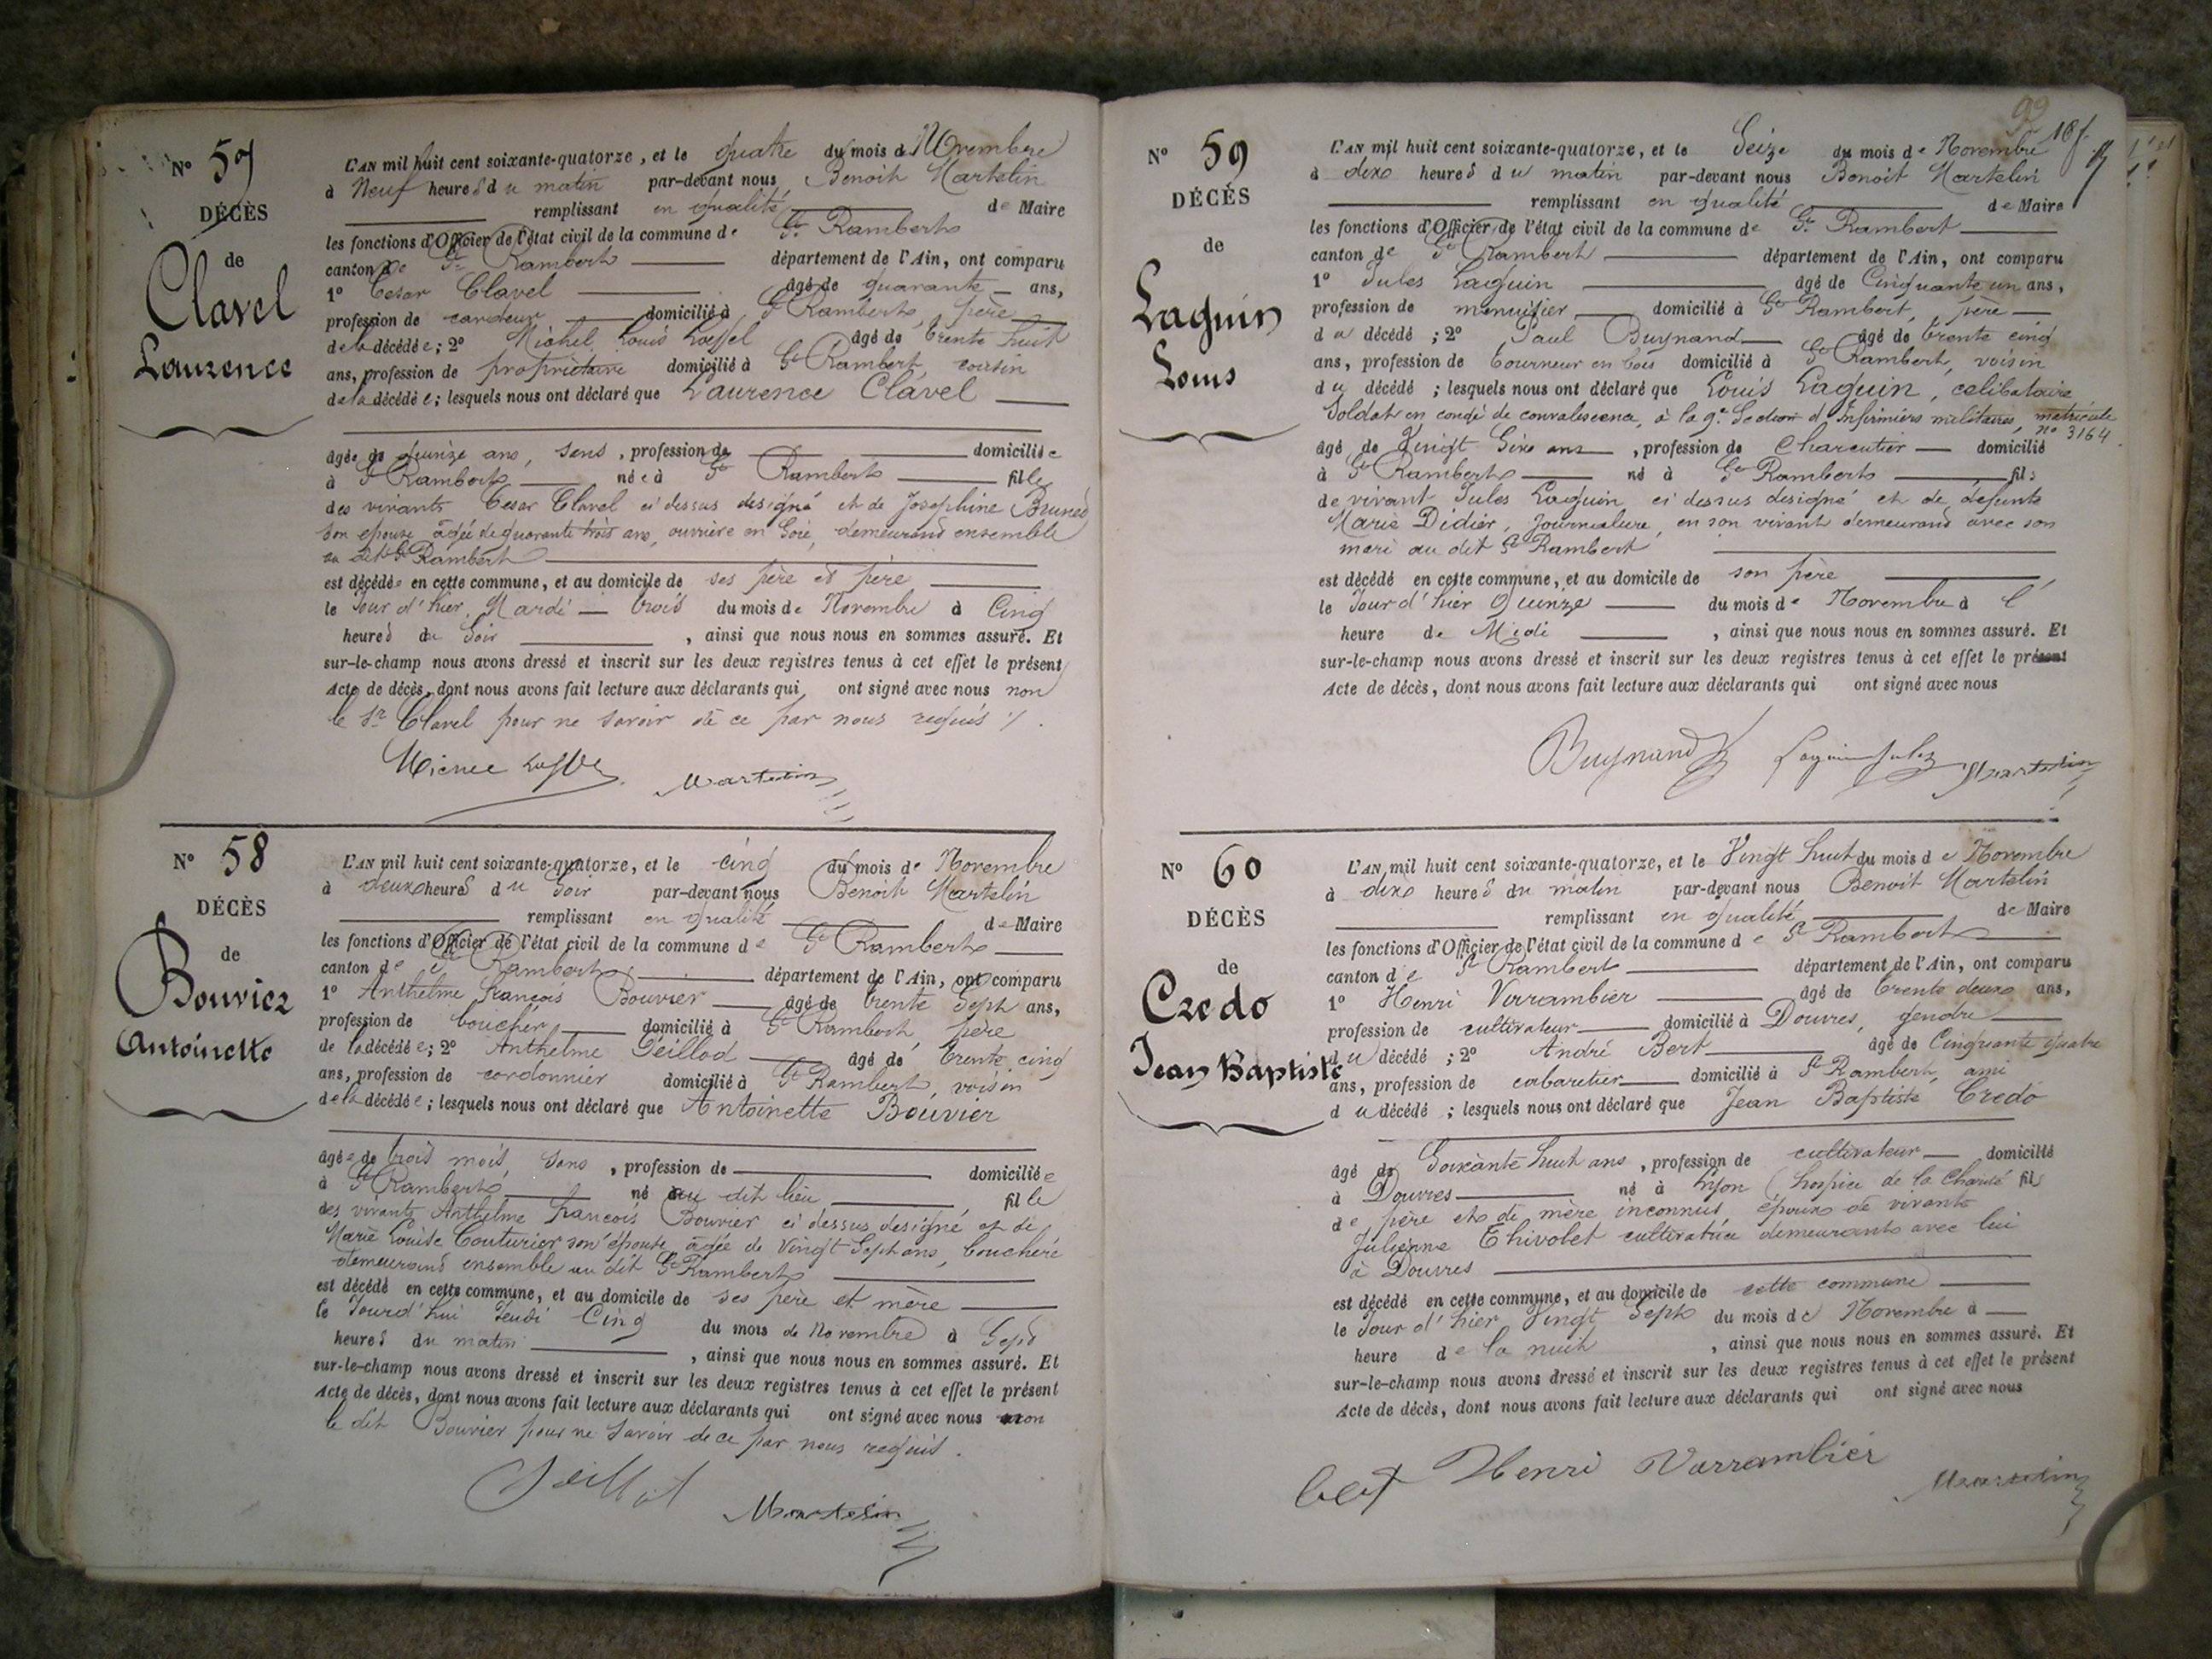 N° 57
DÉCÈS
de
Clavel
Laurence
L'AN mil huit cent soixante-quatorze, et le quatre du mois de Novembre
à Neuf heures du matin par-devant nous Benoit Martelin
remplissant en qualité de Maire
les fonctions d'Officier de l'état civil de la commune de St Rambert
canton de St Rambert département de l'Ain, ont comparu
1° Cesar Clavel âgé de quarante ans,
profession de cardeur domicilié à St Rambert, père
de la décédée; 2° Michel Louis âgé de trente huit
ans, profession de propriétaire domicilié à St Rambert, cousin
de la décédée; lesquels nous ont déclaré que Laurence Clavel
âgée de quinze ans, sans, profession de domiciliée
à St Rambert née à St Rambert fille
des vivants Cesar Clavel ci dessus designé et de Josephine Brunet
son epouse agée de quarante trois ans, ouvrière en soie, demeurand ensemble
au dit St Rambert
est décédée en cette commune, et au domicile de ses père et père
le Jour d'hier, Mardi trois du mois de Novembre à Cinq
heures du Soir, ainsi que nous nous en sommes assuré. Et
sur-le-champ nous avons dressé et inscrit sur les deux registres tenus à cet effet le présent
Acte de décès, dont nous avons fait lecture aux déclarants qui ont signé avec nous non
le Sr Clavel pour ne savoir de ce par nous requis
Martelin
N° 58
DÉCÈS
de
Bouvier
Antoinette
L'AN mil huit cent soixante-quatorze, et le cinq du mois de Novembre
à deux heures du Soir par-devant nous Benoit Martelin
remplissant en qualité de Maire
les fonctions d'Officier de l'état civil de la commune de St Rambert
canton de St Rambert département de l'Ain, ont comparu
1° Anthelme François Bouvier âgé de trente Sept ans,
profession de boucher domicilié à St Rambert, père
de la décédée; 2° Anthelme Peillod âgé de trente cinq
ans, profession de cordonnier domicilié à St Rambert, voisin
de la décédée; lesquels nous ont déclaré que Antoinette Bouvier
âgée de trois mois, Sans, profession de domiciliée
à St Rambert né au dit lieu fille
des vivants Anthelme François Bouvier ci dessus designé et de
Marie Louise Couturier son épouse, agée de Vingt Sept ans, bouchère
demeurand ensemble au dit St Rambert
est décédé en cette commune, et au domicile de ses père et mère
le Jourd'hui Jeudi Cinq du mois de Novembre à Sept
heures du matin, ainsi que nous nous en sommes assuré. Et
sur-le-champ nous avons dressé et inscrit sur les deux registres tenus à cet effet le présent
Acte de décès, dont nous avons fait lecture aux déclarants qui ont signé avec nous non
le dit Bouvier pour ne Savoir de ce par nous requis.
Peillod
Martelin
99
N° 59
DÉCÈS
de
Laguin
Louis
L'AN mil huit cent soixante-quatorze, et le Seize du mois de Novembre
à dixe heures du matin par-devant nous Benoit Martelin
remplissant en qualité de Maire
les fonctions d'Officier de l'état civil de la commune de St Rambert
canton de St Rambert département de l'Ain, ont comparu
1° Jules Laguin âgé de Cinquante un ans,
profession de menuisier domicilié à St Rambert, père
du décédé; 2° Paul Buynand âgé de trente cinq
ans, profession de tourneur en bois domicilié à St Rambert, voisin
du décédé; lesquels nous ont déclaré que Louis Laguin, celibataire
Soldat en congé de convalescence, à la 9e Section d'Infirmiers militaires, matricule
n° 3164.
âgé de Vingt Sixe ans, profession de Charcutier domicilié
à St Rambert né à St Rambert fils
de vivant Jules Laguin ci dessus designé et de defunte
Marie Didier, Journaliere, en son vivant demeurand avec son
mari au dit St Rambert
est décédé en cette commune, et au domicile de son père
le Jour d'hier Quinze du mois de Novembre à l'
heure de Midi, ainsi que nous nous en sommes assuré. Et
sur-le-champ nous avons dressé et inscrit sur les deux registres tenus à cet effet le présent
Acte de décès, dont nous avons fait lecture aux déclarants qui ont signé avec nous
Buynand Laguin Jules Martelin
N° 60
DÉCÈS
de
Credo
Jean Baptiste
L'AN mil huit cent soixante-quatorze, et le Vingt huit du mois de Novembre
à dixe heures du matin par-devant nous Benoit Martelin
remplissant en qualité de Maire
les fonctions d'Officier de l'état civil de la commune de St Rambert
canton de St Rambert département de l'Ain, ont comparu
1° Henri Varrambier âgé de trente deuxe ans,
profession de cultivateur domicilié à Douvres, gendre
du décédé; 2° André Bert âgé de Cinquante quatre
ans, profession de cabaretier domicilié à St Rambert, ami
du décédé; lesquels nous ont déclaré que Jean Baptiste Credo
âgé de Soixante huit ans, profession de cultivateur domicilié
à Douvres né à Lyon (hospice de la Charité fils
de père et de mère inconnus, époux de vivante
Julienne Thivolet cultivatrice demeurants avec lui
à Douvres
est décédé en cette commune, et au domicile de cette commune
le Jour d'hier Vingt Sept du mois de Novembre à
heure de la nuit, ainsi que nous nous en sommes assuré. Et
sur-le-champ nous avons dressé et inscrit sur les deux registres tenus à cet effet le présent
Acte de décès, dont nous avons fait lecture aux déclarants qui ont signé avec nous
bert Henri Varrambier Martelin